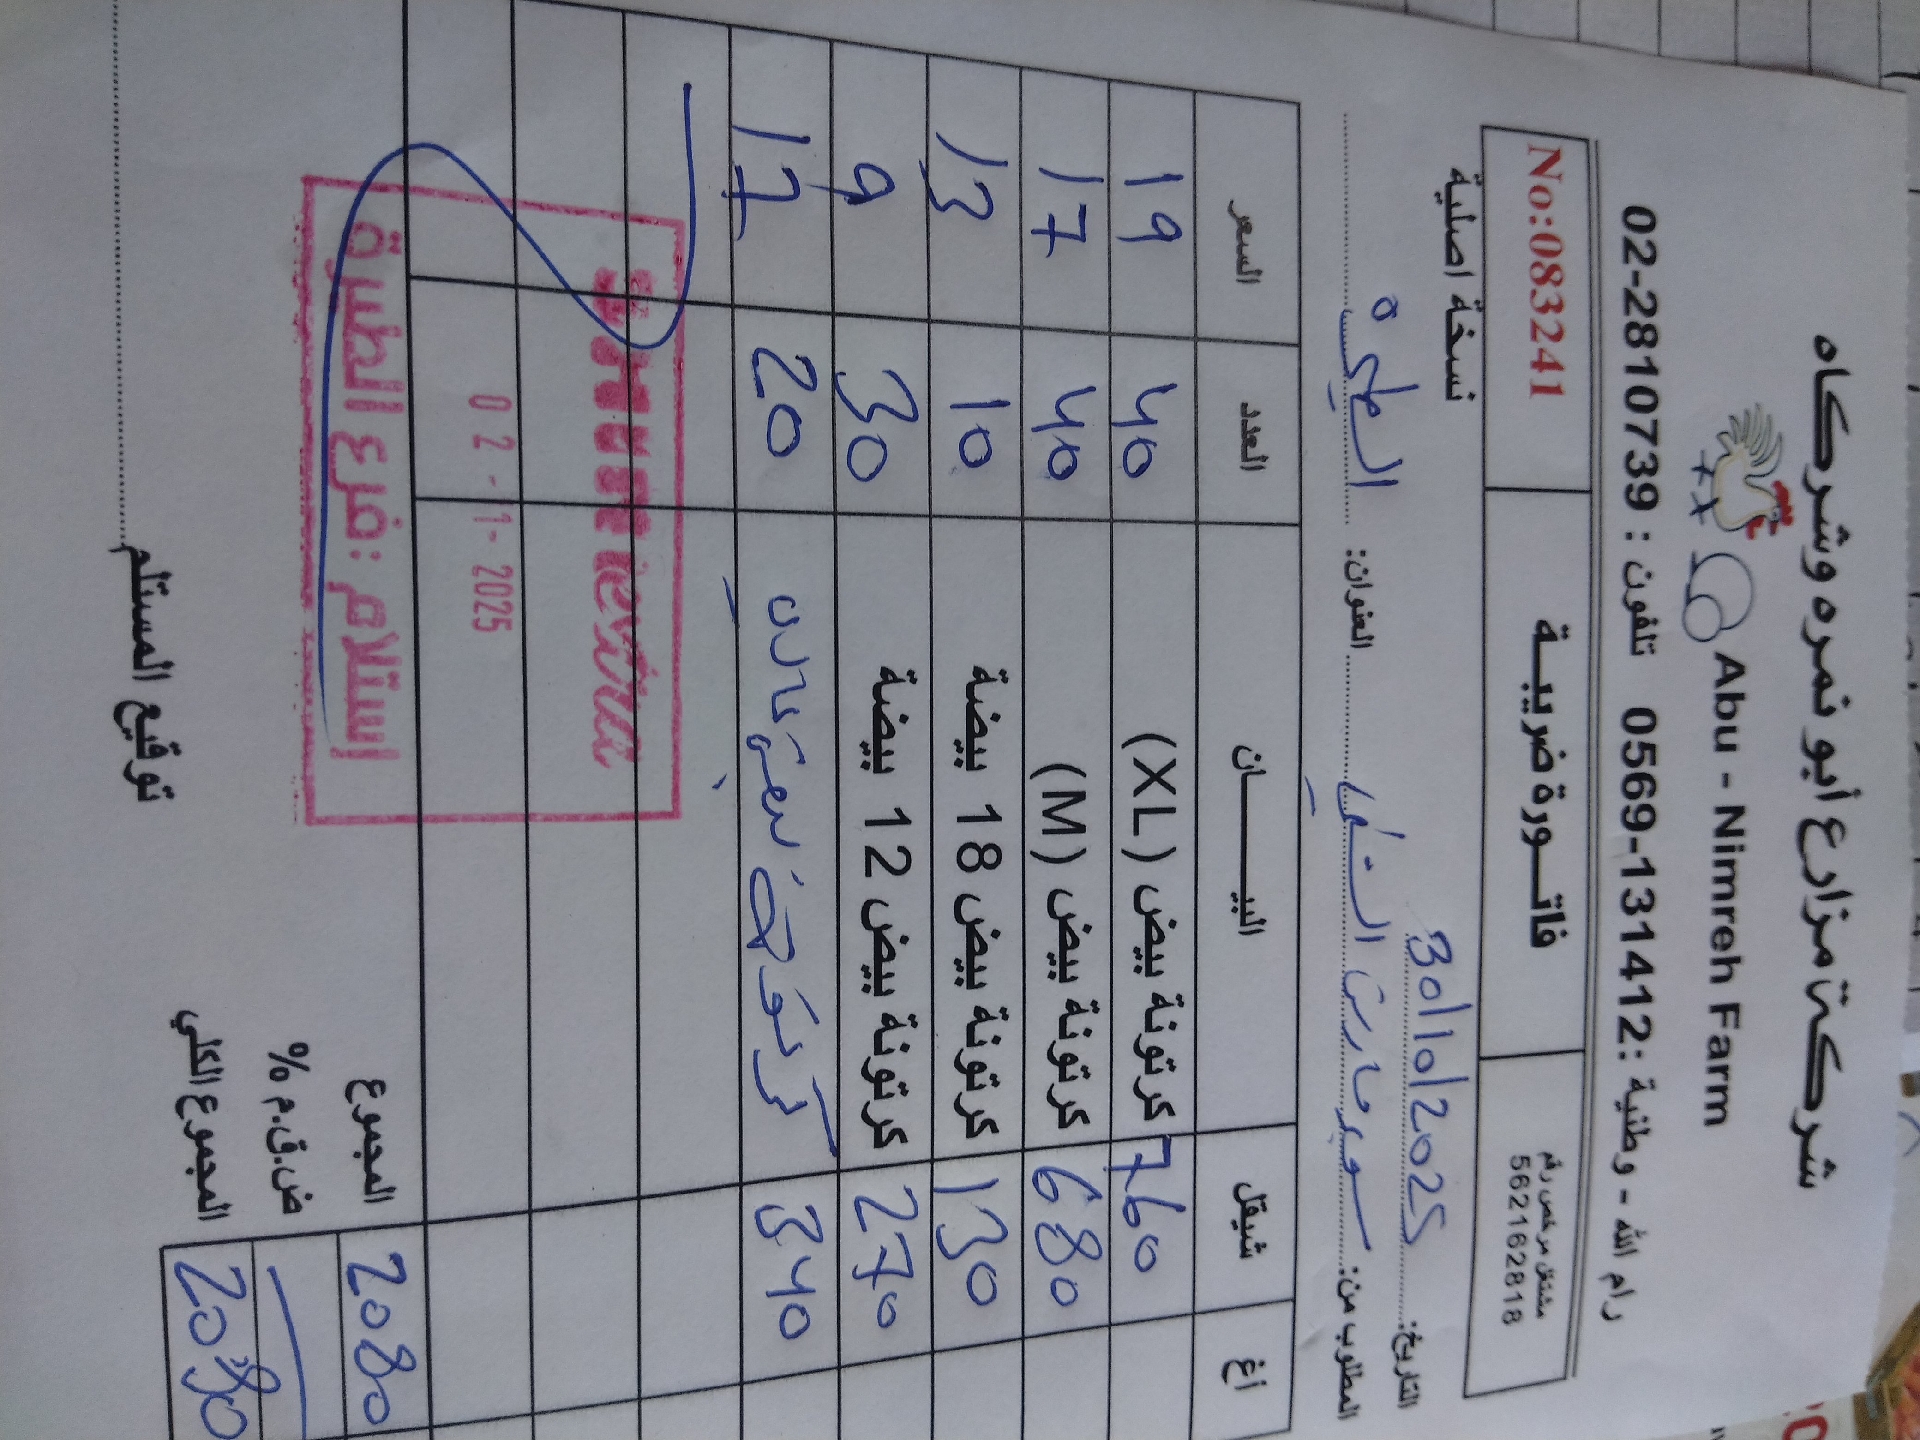 شركة مزارع أبو نمره وشركاه
Abu - Nimreh Farm
رام الله - وطنية :0569-131412 تلفون : 02-2810739
مشتغل مرخص رقم
562162818
فاتـــورة ضريبـــة
No:083241
التاريخ: 30/10/2025
نسخة اصلية
المطلوب من: سوبر مارت العنوان: الطيره
أغ شيقل البيــــــان العدد السعر
760 كرتونة بيض (XL) 40 19
680 كرتونة بيض (M) 40 17
130 كرتونة بيض 18 بيضة 10 13
270 كرتونة بيض 12 بيضة 30 9
340 20 17
02-1-2025
إستلام :فرع الطيرة
المجموع 2080
ض.ق.م %
المجموع الكلي 2080
توقيع المستلم